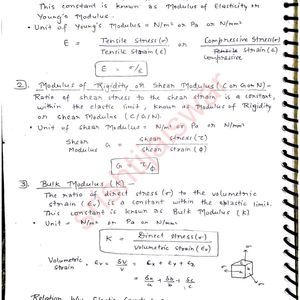 This constant is known as Modulus of Elasticity or
Young's Modulus.
• Unit of Young's Modulus = N/m² or Pa or N/mm²
E = Tensile stress(σ) / Tensile strain(ε) or Compressive stress(σ) / Tensile strain(ε)
Compressive
E = σ/ε
2. Modulus of Rigidity or Shear Modulus (C or G or N)-
Ratio of shear stress to the shear strain is a constant,
within the elastic limit, known as Modulus of Rigidity
or Shear Modulus (C/G/N).
• Unit of shear Modulus = N/m² or Pa or N/mm²
Shear Modulus G = shear stress(τ) / shear strain(φ)
G = τ/φ
3. Bulk Modulus (K)
The ratio of direct stress(σ) to the volumetric
strain (εv) is a constant within the elastic limit.
This constant is known as Bulk Modulus (K)
• Unit = N/m² or Pa or N/mm²
K = Direct stress(σ) / volumetric strain(εv)
Volumetric strain, εv = δv/v = εx + εy + εz
= δa/a + δb/b + δc/c